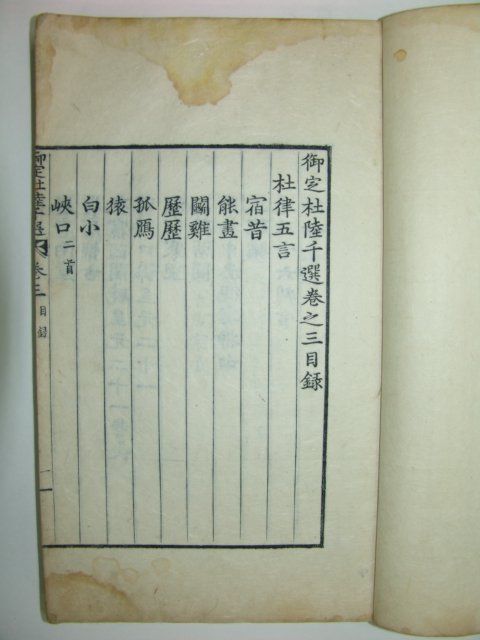 御定杜陸千選卷之三目録
杜律五言
宿昔
能畫
鬪雞
歷歷
孤鴈
猿
白小
峽口二首
御定杜陸千選
卷三
目録
一